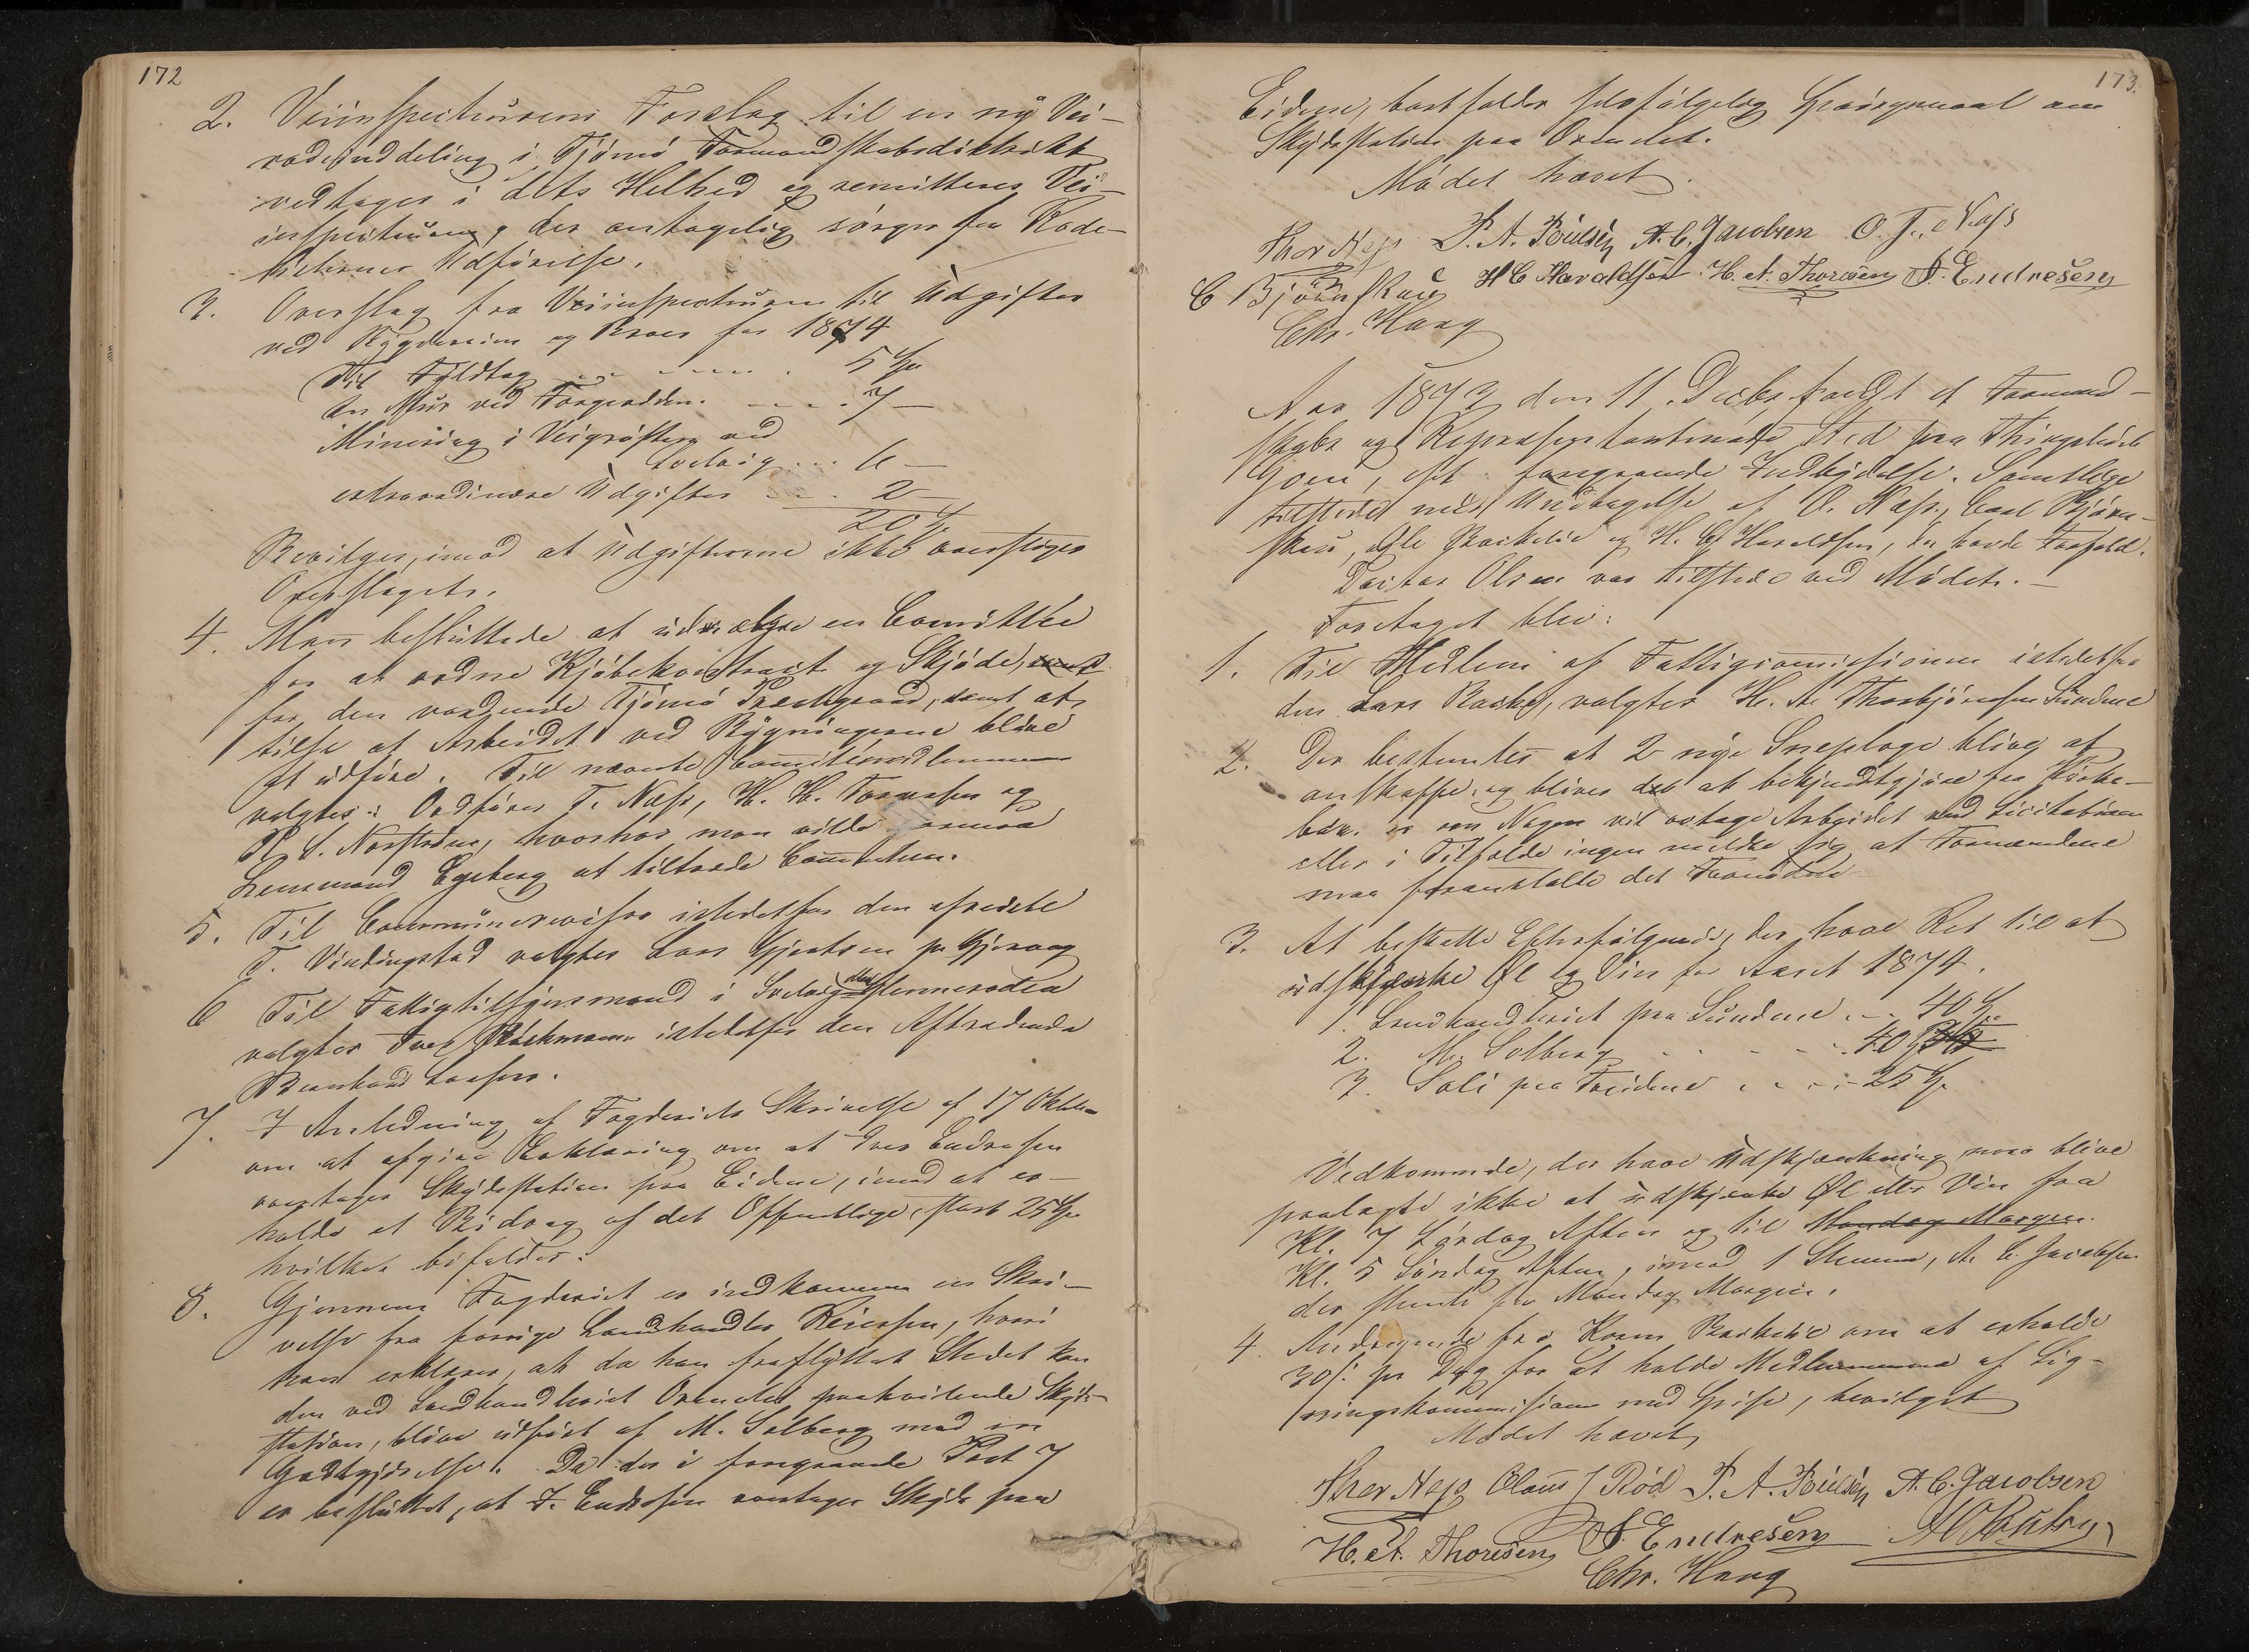 172
2. Veiinspecteurens Forslag til en ny Vei-
rodeinddeling i Tjømø Formandskabsdistrikt
vedtages i dets Helhed og remitteres Vei-
inspecteuren, der antagelig sørger for Rode-
listernes Udførelse.
3. Overslag fra Veiinspecteuren til Udgifter
ved Bygdeveie og Broer for 1874
Til Fyldtag 5 Spd
En Mur ved Fougerødden 7 —
Minering i Veigrøften ved
Svelvig 6 —
extraordinære Udgifter 2 —
20 Spd
Bevilges, imod at Udgifterne ikke overstiger
Overslaget.
4. Man besluttede at udvælge en Comittee
for at ordne Kjøbekontract og Skjøde, samt
for den vordende Tjømø Præstegaard, samt at
tilse at Arbeidet ved Bygningerne blive
at udføre. Til nævnte Comitémedlemmer
valgtes: Ordfører T. Næss, H. H. Thoresen og
S. Norstrøm, hvorhos man vilde formaa
Lensmand Egeberg at tiltræde Comiteen.
5. Til Communerevisor istedetfor den afreiste
T. Vindingstad valgtes Lars Gjertsen pr Gjervaag
6 Til Fattigtilsynsmand i Svelvig Sønneroden
valgtes Iver Bjøshmann istedetfor den Aftrædende
Bernhard Larsen.
7. I Anledning af Fogderiets Skrivelse af 17 Oktober
om at afgive Erklæring om at Iver Endresen
overtager Skydsstation paa Eidene, imod at er-
holde et Bidrag af det Offentlige, stort 25 Spd
hvilket bifaldtes.
8. Gjennem Fogderiet er indkommen en Skri-
velse fra forrige Landhandler Reiersen, hvori
han erklærer, at da han fraflyttet Stedet kan
den ved Landhandleriet Ormelet paahvilende Skyds-
station, blive udført af M. Solberg mod en
Godtgjørelse. Da der i foregaaende Post 7
er besluttet, at I. Endresen overtager Skyds paa
173.
Eidene, bortfalder selvfølgelig Spørgsmaal om
Skydsstation paa Ormelet.
Mødet hævet.
Thor Næss P. A. Poulsen A. C. Jacobsen O. J. Næss
C Bjørnskau H C Haraldsen H. A. Thoresen A. Endresen
Chr. Haug
Aar 1873 den 11. Decbr. foregik et Formand-
skabs og Repræsentantmøde Sted paa Thinglaavet
Goen, eft. foregaaende Indbydelse. Samtlige
tilstede med Undtagelse af O. Næss, Carl Bjørn-
skau, Ole Barkevik og H. C. Haraldsen, der havde Forfald.
Doctor Olsen var tilstede ved Mødet.
Foretaget blev:
1. Til Medlem af Fattigcommissionen istedetfor
den Lars Bache, valgtes H. A. Thorbjørnsen Sundene
2. Der bestemtes at 2 nye Sneploge blive at
anskaffe, og bliver det at bekjendtgjøre fra Kirke-
bak. om Nogen vil overtage Arbeidet ved Licitation
eller i Tilfælde ingen melder sig at Formændene
maa foranstalte det Fornødne
3. At beskatte Efterfølgende, der have Ret til at
udskjænke Øl og Vin for Aaret 1874.
1. Landhandleriet paa Sundene 40 Spd
2. M. Solberg 40 Spd
3. Soli paa Treidene 25 Spd
Vedkommende, der have Udskjænkning maa blive
paalagte ikke at udskjænke Øl eller Vin fra
Kl. 7 Lørdag Aften og til Mandag Morgen.
Kl. 5 Søndag Aften, imod 1 Stemme, A. C. Jacobsen
der stemte for Mandag Morgen.
4. Andragende fra Karen Barkevik om at erholde
30 s. pr Dag for at holde Medlemmerne af Lig-
ningskommisionen med Spise, bevilget
Mødet hævet
Thor Næss Olaus J Rød P. A. Poulsen A. C. Jacobsen
H. A. Thoresen A. Endresen
Chr. Haug